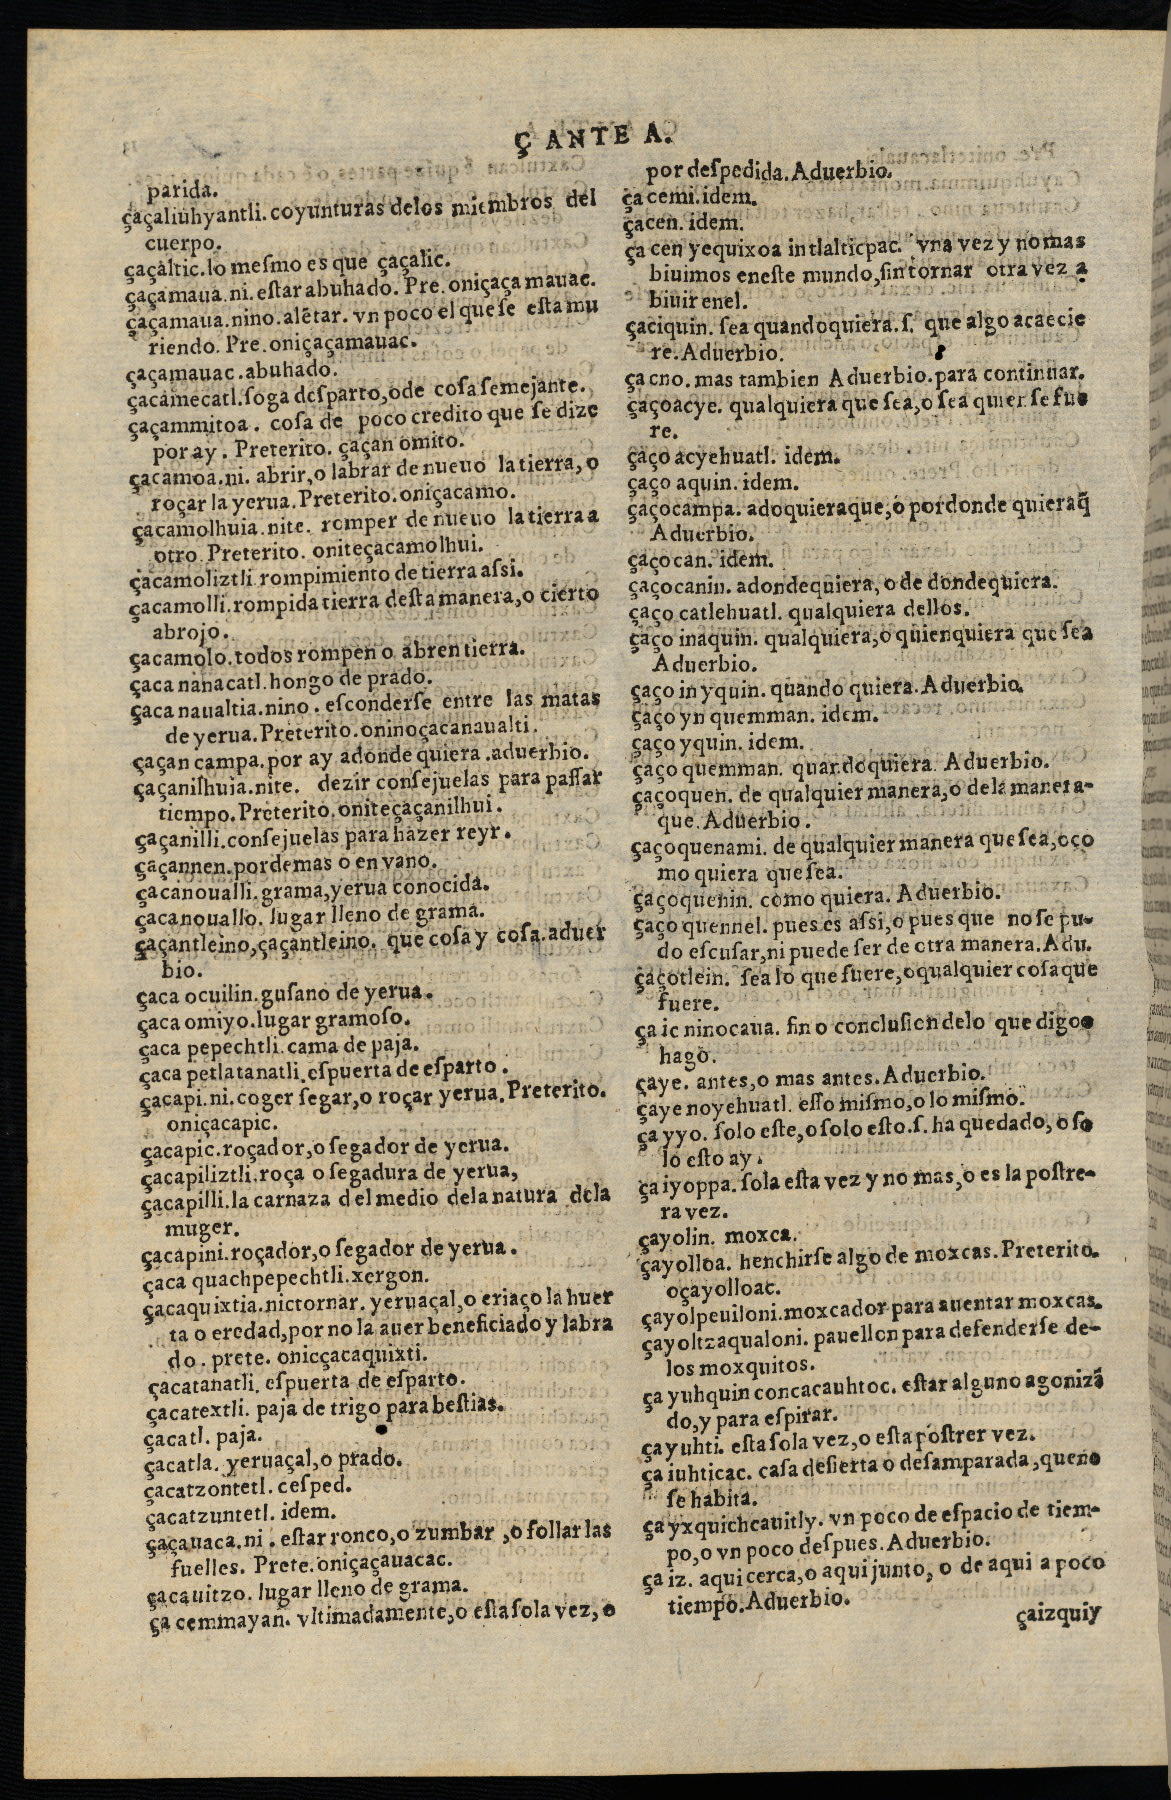 Ç ANTE A.
parida.
çaçaliuhyantli. coyunturas delos miembros del
cuerpo.
çaçaltic. lo meſmo es que çaçalic.
çaçamaua. ni. eſtar abuhado. Pre. oniçaçamauac.
çaçamaua. nino. alẽtar. vn poco el que ſe eſta mu
riendo. Pre. oniçaçamauac.
çaçamauac. abuhado.
çacamecatl. ſoga deſparto, o de coſa ſemejante.
çaçammitoa. coſa de poco credito que ſe dize
por ay. Preterito. çaçan omito.
çacamoa. ni. abrir, o labrar de nueuo la tierra, o
roçar la yerua. Preterito. oniçacamo.
çacamolhuia. nite. romper de nueuo la tierra a
otro. Preterito. oniteçacamolhui.
çacamoliztli. rompimiento de tierra aſsi.
çacamolli. rompida tierra deſta manera, o cierto
abrojo.
çacamolo. todos rompen o abren tierra.
çaca nanacatl. hongo de prado.
çaca naualtia. nino. eſconderſe entre las matas
de yerua. Preterito. oninoçacanaualti.
çaçan campa. por ay adonde quiera. aduerbio.
çaçanilhuia. nite. dezir conſejuelas para paſſar
tiempo. Preterito. oniteçaçanilhui.
çaçanilli. conſejuelas para hazer reyr.
çaçannen. por demas o en vano.
çacanoualli. grama, yerua conocida.
çacanouallo. lugar lleno de grama.
çaçantleino, çaçantleino. que coſa y coſa. aduer
bio.
çaca ocuilin. guſano de yerua.
çaca omiyo. lugar gramoſo.
çaca pepechtli. cama de paja.
çaca petlatanatli. eſpuerta de eſparto.
çacapi. ni. coger ſegar, o roçar yerua. Preterito.
oniçacapic.
çacapic. roçador, o ſegador de yerua.
çacapiliztli. roça o ſegadura de yerua,
çacapilli. la carnaza del medio dela natura dela
muger.
çacapini. roçador, o ſegador de yerua.
çaca quachpepechtli. xergon.
çacaquixtia. nictornar. yeruaçal, o eriaço la huer
ta o eredad, por no la auer beneficiado y labra
do. prete. onicçacaquixti.
çacatanatli. eſpuerta de eſparto.
çacatextli. paja de trigo para beſtias.
çacatl. paja.
çacatla. yeruaçal, o prado.
çacatzontetl. ceſped.
çacatzuntetl. idem.
çaçauaca. ni. eſtar ronco, o zumbar, o follar las
fuelles. Prete. oniçaçauacac.
çacauitzo. lugar lleno de grama.
ça cemmayan. vltimadamente, o eſta ſola vez, o
por deſpedida. Aduerbio.
ça cemi. idem.
çacen. idem.
ça cen yequixoa in tlalticpac. vna vez y no mas
biuimos eneſte mundo, ſin tornar otra vez a
biuir enel.
çaciquin. ſea quando quiera. ſ. que algo acaecie
re. Aduerbio.
ça cno. mas tambien Aduerbio. para continuar.
çaçoacye. qualquiera que ſea, o ſea quien ſe fue
re.
çaço acyehuatl. idem.
çaço aquin. idem.
çaçocampa. adoquieraque, o por donde quiera q̃
Aduerbio.
çaçocan. idem.
çaçocanin. adondequiera, o de dondequiera.
çaço catlehuatl. qualquiera dellos.
çaço inaquin. qualquiera, o quienquiera que ſea
Aduerbio.
çaço in yquin. quando quiera. Aduerbio.
çaço yn quemman. idem.
çaço yquin. idem.
çaço quemman. quando quiera. Aduerbio.
çaçoquen. de qualquier manera, o dela manera-
que. Aduerbio.
çaçoquenami. de qualquier manera que ſea, o co
mo quiera que ſea.
çaçoquenin. como quiera. Aduerbio.
çaço quennel. pues es aſsi, o pues que no ſe pu-
do eſcuſar, ni puede ſer de otra manera. Adu.
çaçotlein. ſea lo que fuere, o qualquier coſa que
fuere.
ça ic ninocaua. fin o concluſion delo que digo o
hago.
çaye. antes, o mas antes. Aduerbio.
çaye noyehuatl. eſſo miſmo, o lo miſmo.
ça yyo. ſolo eſte, o ſolo eſto. ſ. ha quedado, o ſo
lo eſto ay.
ça iyoppa. ſola eſta vez y no mas, o es la poſtre-
ra vez.
çayolin. moxca.
çayolloa. henchirſe algo de moxcas. Preterito.
oçayolloac.
çayolpeuiloni. moxcador para auentar moxcas.
çayoltzaqualoni. pauellon para defenderſe de-
los moxquitos.
ça yuhquin concacauhtoc. eſtar alguno agonizã
do, y para eſpirar.
çayuhti. eſta ſola vez, o eſta poſtrer vez.
ça iuhticac. caſa deſierta o deſamparada, que no
ſe habita.
ça yxquichcauitly. vn poco de eſpacio de tiem-
po, o vn poco deſpues. Aduerbio.
ça iz. aqui cerca, o aqui junto, o de aqui a poco
tiempo. Aduerbio.
çaizquiy